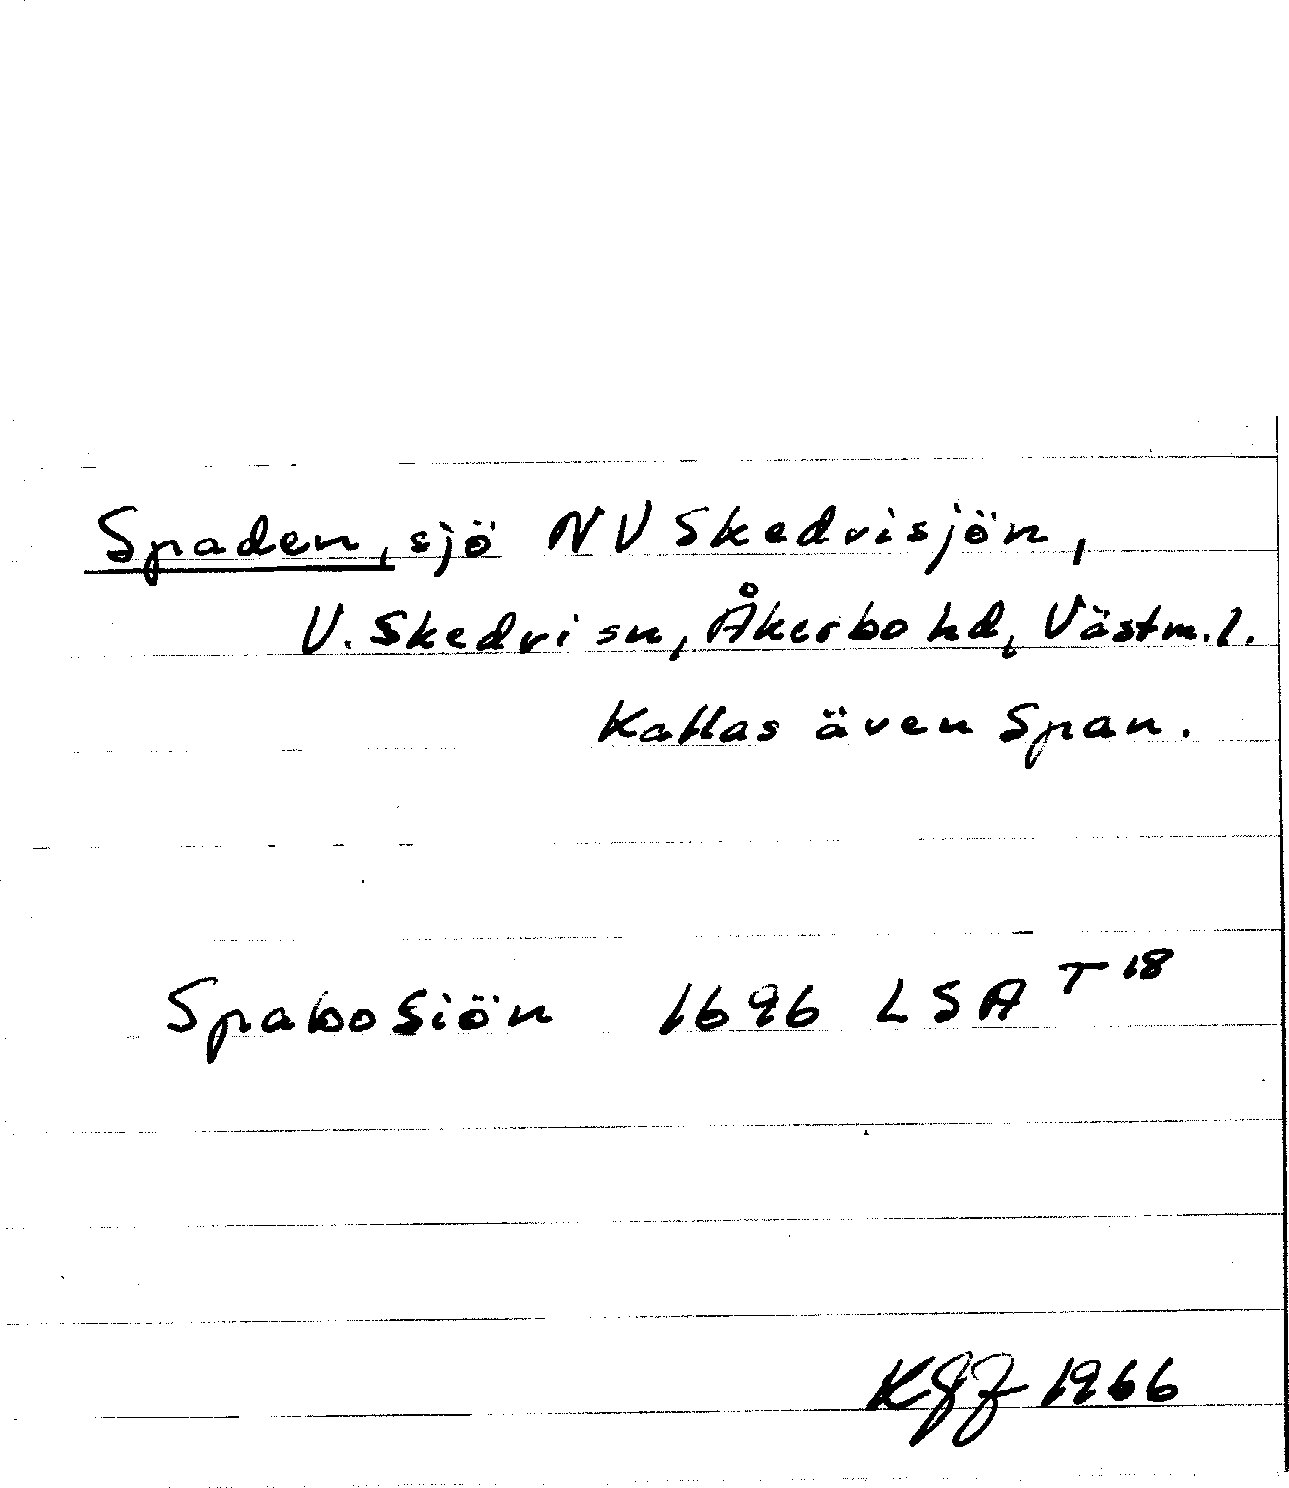 Spaden, sjö NV Skedvisjön,
V. Skedvi sn, Åkerbo hd, Västm. l.
Kallas även Span.
Spabo Siön 1696 LSA T 18
1966